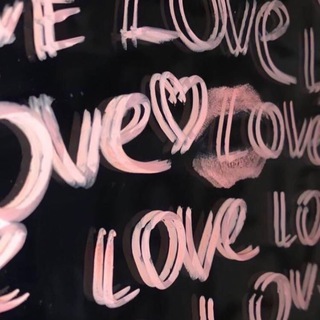 VE LOVE L
OVE LOVE
LOVE LO
LOV